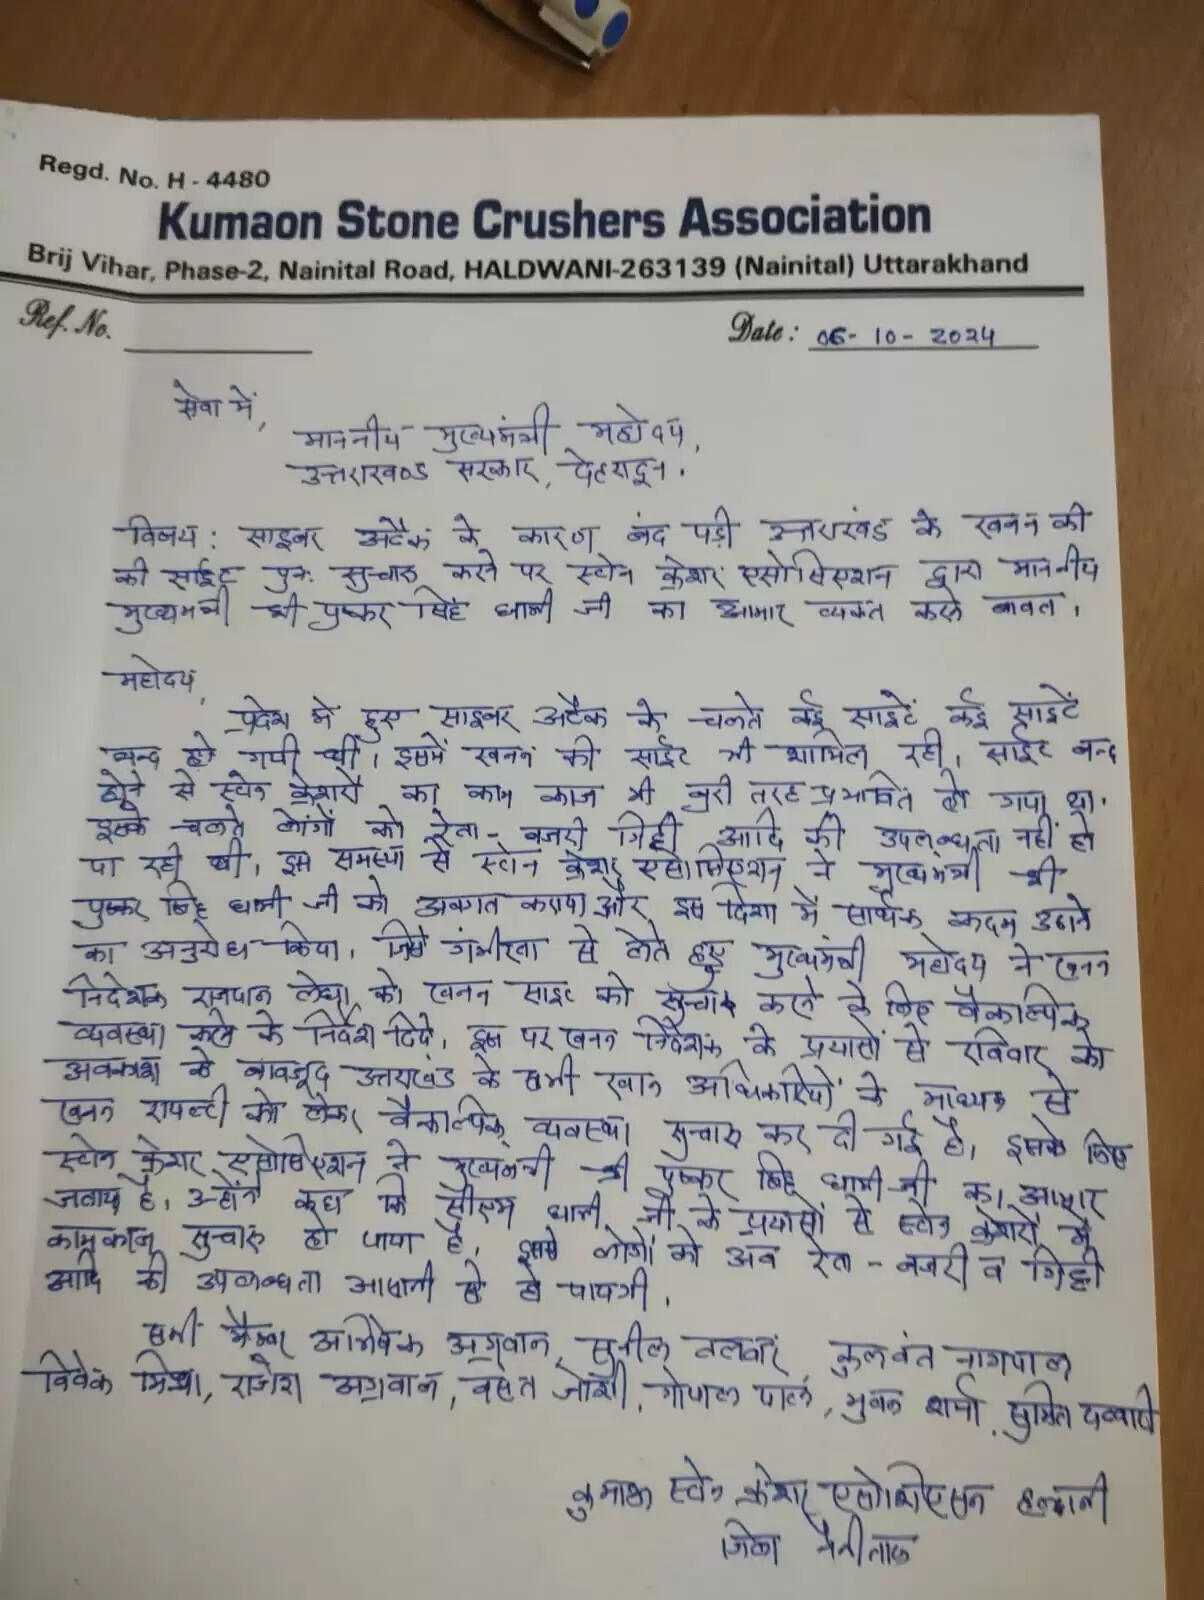 Regd. No. H - 4480
Kumaon Stone Crushers Association
Brij Vihar, Phase-2, Nainital Road, HALDWANI-263139 (Nainital) Uttarakhand
Ref. No.
Date : 06-10-2024
सेवा में,
माननीय मुख्यमंत्री महोदय,
उत्तराखण्ड सरकार, देहरादून।
विषय: साइबर अटैक के कारण बंद पड़ी उत्तराखंड के खनन की
की साईट पुनः सुचारू करने पर स्टोन क्रेशर एसोसिएशन द्वारा माननीय
मुख्यमन्त्री श्री पुष्कर सिंह धामी जी का आभार व्यक्त करने बावत।
महोदय,
प्रदेश में हुए साइबर अटैक के चलते कई साइटें कई साइटें
बन्द हो गयी थीं। इसमें खनन की साईट भी शामिल रही। साईट बन्द
होने से स्टोन क्रेशरों का काम काज भी बुरी तरह प्रभावित हो गया था।
इसके चलते लोगों को रेता-बजरी गिट्टी आदि की उपलब्धता नहीं हो
पा रही थी। इस समस्या से स्टोन क्रेशर एसोसिएशन ने मुख्यमंत्री श्री
पुष्कर सिंह धामी जी को अवगत कराया और इस दिशा में सार्थक कदम उठाने
का अनुरोध किया। जिसे गंभीरता से लेते हुए मुख्यमंत्री महोदय ने खनन
निदेशक राजपाल लेघा को खनन साइट को सुचारू करने के लिए वैकल्पिक
व्यवस्था करने के निर्देश दिये। इस पर खनन निदेशक के प्रयासों से रविवार को
अवकाश के बावजूद उत्तराखंड के सभी खान अधिकारियों के माध्यम से
खनन रायल्टी को लेकर वैकल्पिक व्यवस्था सुचारू कर दी गई है। इसके लिए
स्टोन क्रेशर एसोसिएशन ने मुख्यमन्त्री श्री पुष्कर सिंह धामी जी का आभार
जताया है। उन्होंने कहा कि सीएम धामी जी के प्रयासों से स्टोन क्रेशरों में
कामकाज सुचारू हो पाया है। इससे लोगों को अब रेता-बजरी व गिट्टी
आदि की उपलब्धता आसानी से हो पायगी।
सभी मैम्बर अभिषेक अग्रवाल, सुनील तलवार, कुलवंत नागपाल
विवेक मिश्रा, राजेश अग्रवाल, वसंत जोशी, गोपाल पाल, भुवन शर्मा, सुमित
कुमाऊ स्टोन क्रेशर एसोशिएसन हल्द्वानी
जिला नैनीताल